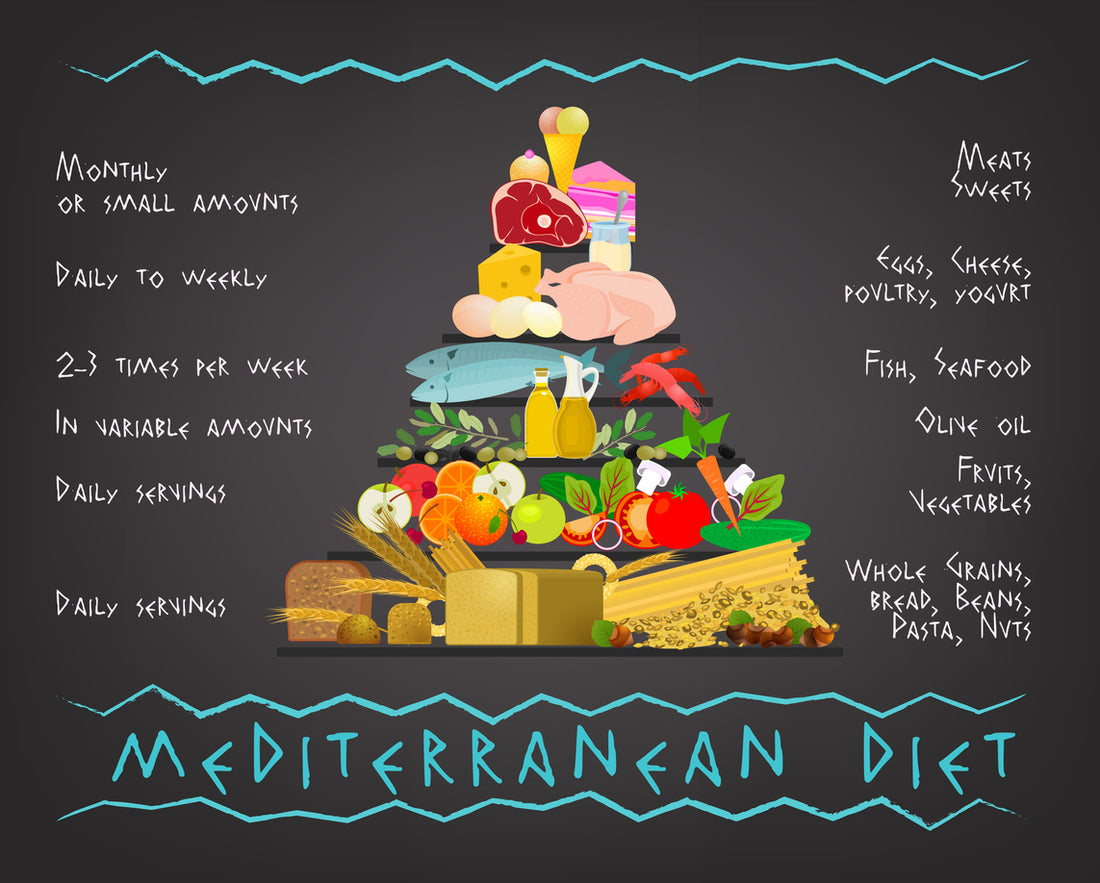 Monthly
or small amovnts
Meats
Sweets
Daily to weekly
Eggs, Cheese,
povltry, yogvrt
2-3 times per week
Fish, Seafood
In variable amovnts
Olive oil
Daily servings
Frvits,
Vegetables
Daily servings
Whole Grains,
bread, Beans,
Pasta, Nvts
Mediterranean Diet